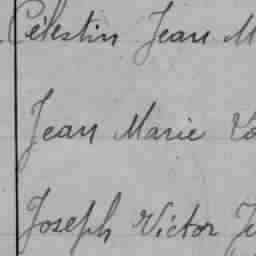 Célestin Jean M
Jean Marie
Joseph Victor